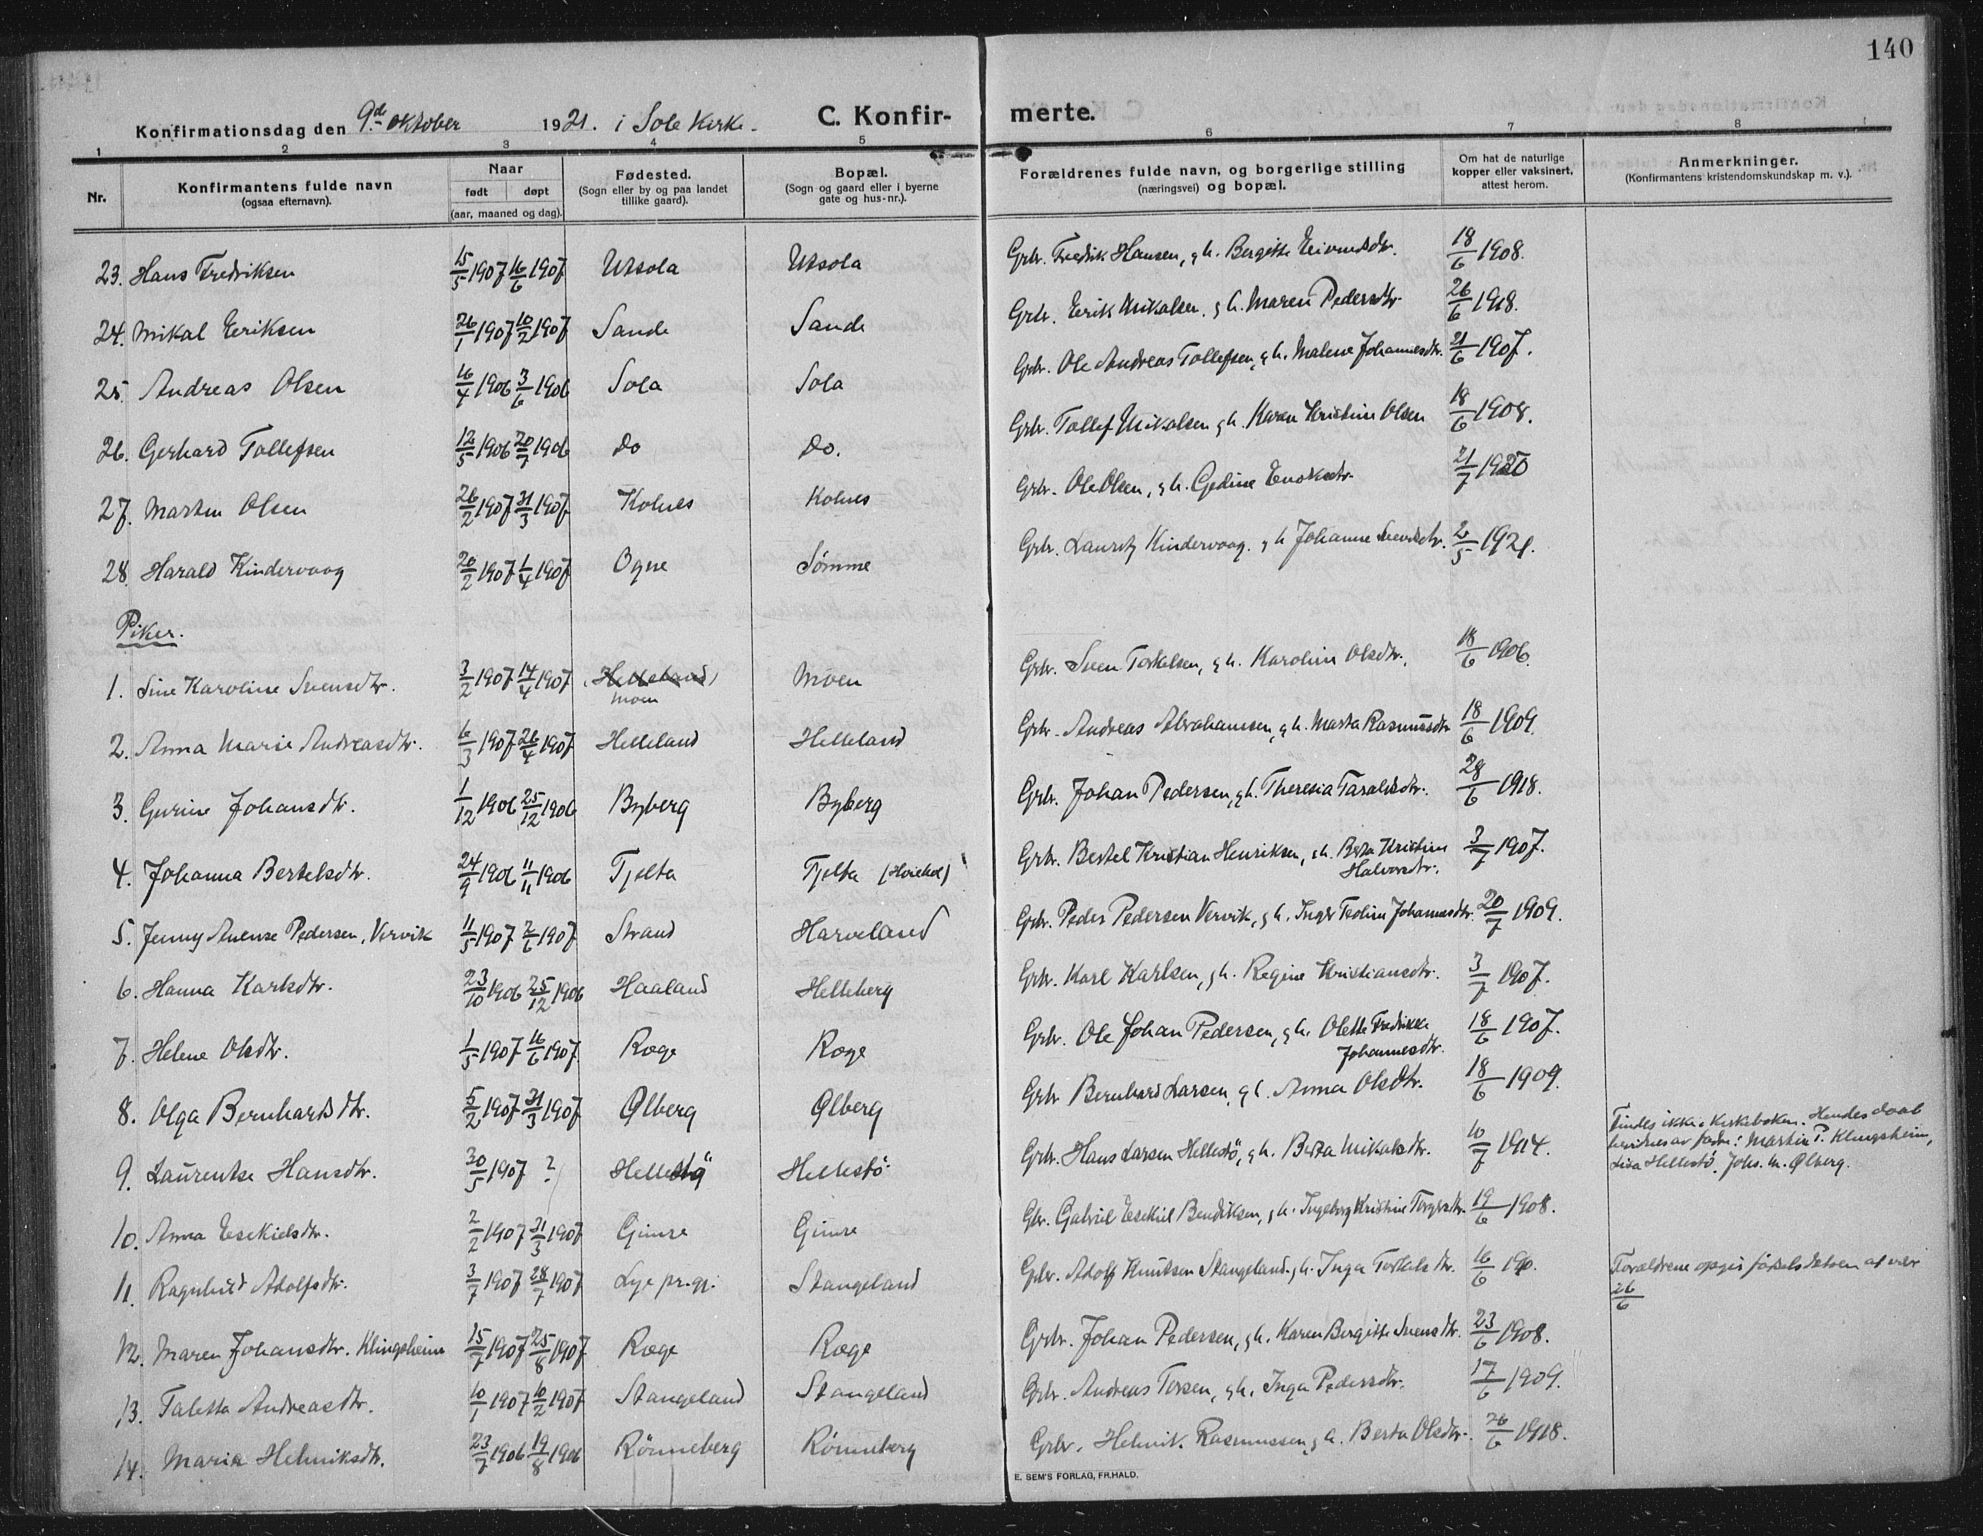 140
Konfirmationsdag den 9de oktober 1921. i Sole Kirke. C. Konfirmerte.
1 2 3 4 5 6 7 8
Nr. Konfirmantens fulde navn (ogsaa efternavn). Naar født døpt (aar, maaned og dag). Fødested. (Sogn eller by og paa landet tillike gaard). Bopæl. (Sogn og gaard eller i byerne gate og hus-nr.). Forældrenes fulde navn, og borgerlige stilling (næringsvei) og bopæl. Om hat de naturlige kopper eller vaksinert, attest herom. Anmerkninger. (Konfirmantens kristendomskundskap m. v.).
23. Hans Fredriksen 15/5 1907 16/6 1907 Utsola Utsola Grbr. Fredrik Hansen, g h. Bergitte Eivindsdtr. 18/6 1908.
24. Mikal Eriksen 26/1 1907 10/2 1907 Sande Sande Grbr. Erik Mikalsen, g h. Maren Pedersdtr. 26/6 1918.
25. Andreas Olsen 16/4 1906 3/6 1906 Sola Sola Grbr. Ole Andreas Tollefsen, g h. Malene Johannesdtr. 21/6 1907.
26. Gerhard Tollefsen 12/5 1906 20/7 1906 Do Do. Grbr. Tollef Mikalsen g h. Karen Kristine Olsen 18/6 1908.
27. Marten Olsen 26/2 1907 31/3 1907 Kolnes Kolnes Grbr. Ole Olsen, g h. Gedine Enoksdtr. 21/7 1920
28 Harald Kindervaag 20/2 1907 1/4 1907 Ogne Sømme Grbr. Lauritz Kindervaag. g h Johanne Svendsdtr. 2/5 1921.
Piker.
1. Sine Karoline Svensdtr. 3/2 1907 14/4 1907 Helleland Moen Moen Grbr. Sven Torkelsen, g h. Karoline Olsdtr. 18/6 1906.
2. Anna Marie Andreasdtr. 6/3 1907 26/4 1907 Helleland Helleland Grbr. Andreas Abrahamsen, g h. Marta Rasmusdtr 18/6 1909.
3. Gurine Johansdtr. 1/12 1906 25/12 1906 Byberg Byberg Grbr. Johan Pedersen, g h. Theresia Taraldsdtr. 28/6 1918.
4. Johanna Bertelsdtr. 24/9 1906 11/11 1906 Tjelta Tjelta Grbr. Bertel Kristian Henriksen, g h. Berta Kristine Halvorsdtr. 3/7 1907.
5. Jenny Anense Pedersen, Vervik 11/5 1907 2/6 1907 Strand Harveland Grbr. Peder Pedersen Vervik, g h. Inger Teoline Johannesdtr. 20/7 1909.
6. Hanna Karlsdtr. 23/10 1906 25/12 1906 Haaland Helleberg Grbr. Karl Karlsen, g h. Regine Kristiansdtr. 3/7 1907.
7. Helene Olsdtr. 1/5 1907 16/6 1907 Røge Røge Grbr. Ole Johan Pedersen, g h. Olette Fredrikke Johannesdtr. 18/6 1907.
8. Olga Bernhartsdtr. 5/2 1907 31/3 1907 Ølberg Ølberg Grbr Bernhard Larsen, g h. Anna Olsdtr. 18/6 1909.
9. Laurentse Hansdtr. 30/5 1907 ? Hellestø Hellestö. Grbr. Hans Larsen Hellestö, g h. Berta Mikalsdtr. 10/7 1914. Findes ikke i kirkeboken. Hendes daab bevidnes av fadre: Martin P. Klingsheim, Lisa Hellestö, Johs. M. Ølberg.
10. Anna Esekielsdtr. 2/2 1907 31/3 1907 Gimre Gimre Gbr. Gabriel Esekiel Bendiksen, g h. Ingeborg Kristine Torgersdtr. 19/6 1908.
11. Ragnhild Adolfsdtr. 3/7 1907 28/7 1907 Lye pr.gj. Stangeland Gbr. Adolf Knutsen Stangeland. g h. Inga Torkelsdtr. 16/6 Forældrene opgir fødselsdatoen at være 26/6
12. Maren Johansdtr. Klingsheim 15/7 1907 25/8 1907 Røge Røge Grbr. Johan Pedersen, g h. Karen Bergitte Svensdtr. 23/6 1908.
13. Taletta Andreasdtr. 10/1 1907 10/2 1907 Stangeland Stangeland Grbr. Andreas Torsen, g h. Inga Pedersdtr. 17/6 1909.
14. Maria Helmiksdtr. 23/7 1906 19/8 1906 Rönneberg Rönneberg Grbr. Helmik Rasmussen, g h. Berta Olsdtr. 26/6 1918.
E. SEM'S FORLAG, FR.HALD.